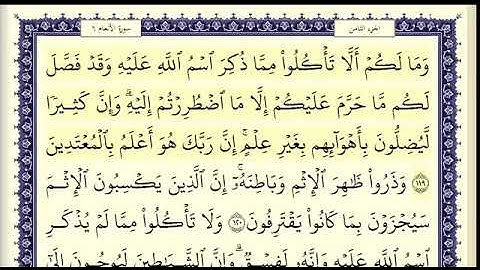 الجزء الثامن سورة الأنعام ٦
وَمَا لَكُمْ أَلَّا تَأْكُلُوا۟ مِمَّا ذُكِرَ ٱسْمُ ٱللَّهِ عَلَيْهِ وَقَدْ فَصَّلَ
لَكُم مَّا حَرَّمَ عَلَيْكُمْ إِلَّا مَا ٱضْطُرِرْتُمْ إِلَيْهِ ۗ وَإِنَّ كَثِيرًا
لَّيُضِلُّونَ بِأَهْوَآئِهِم بِغَيْرِ عِلْمٍ ۗ إِنَّ رَبَّكَ هُوَ أَعْلَمُ بِٱلْمُعْتَدِينَ
١١٩ وَذَرُوا۟ ظَٰهِرَ ٱلْإِثْمِ وَبَاطِنَهُۥٓ ۚ إِنَّ ٱلَّذِينَ يَكْسِبُونَ ٱلْإِثْمَ
سَيُجْزَوْنَ بِمَا كَانُوا۟ يَقْتَرِفُونَ ١٢٠ وَلَا تَأْكُلُوا۟ مِمَّا لَمْ يُذْكَرِ
ٱسْمُ ٱللَّهِ عَلَيْهِ وَإِنَّهُۥ لَفِسْقٌ ۗ وَإِنَّ ٱلشَّيَٰطِينَ لَيُوحُونَ إِلَىٰٓ